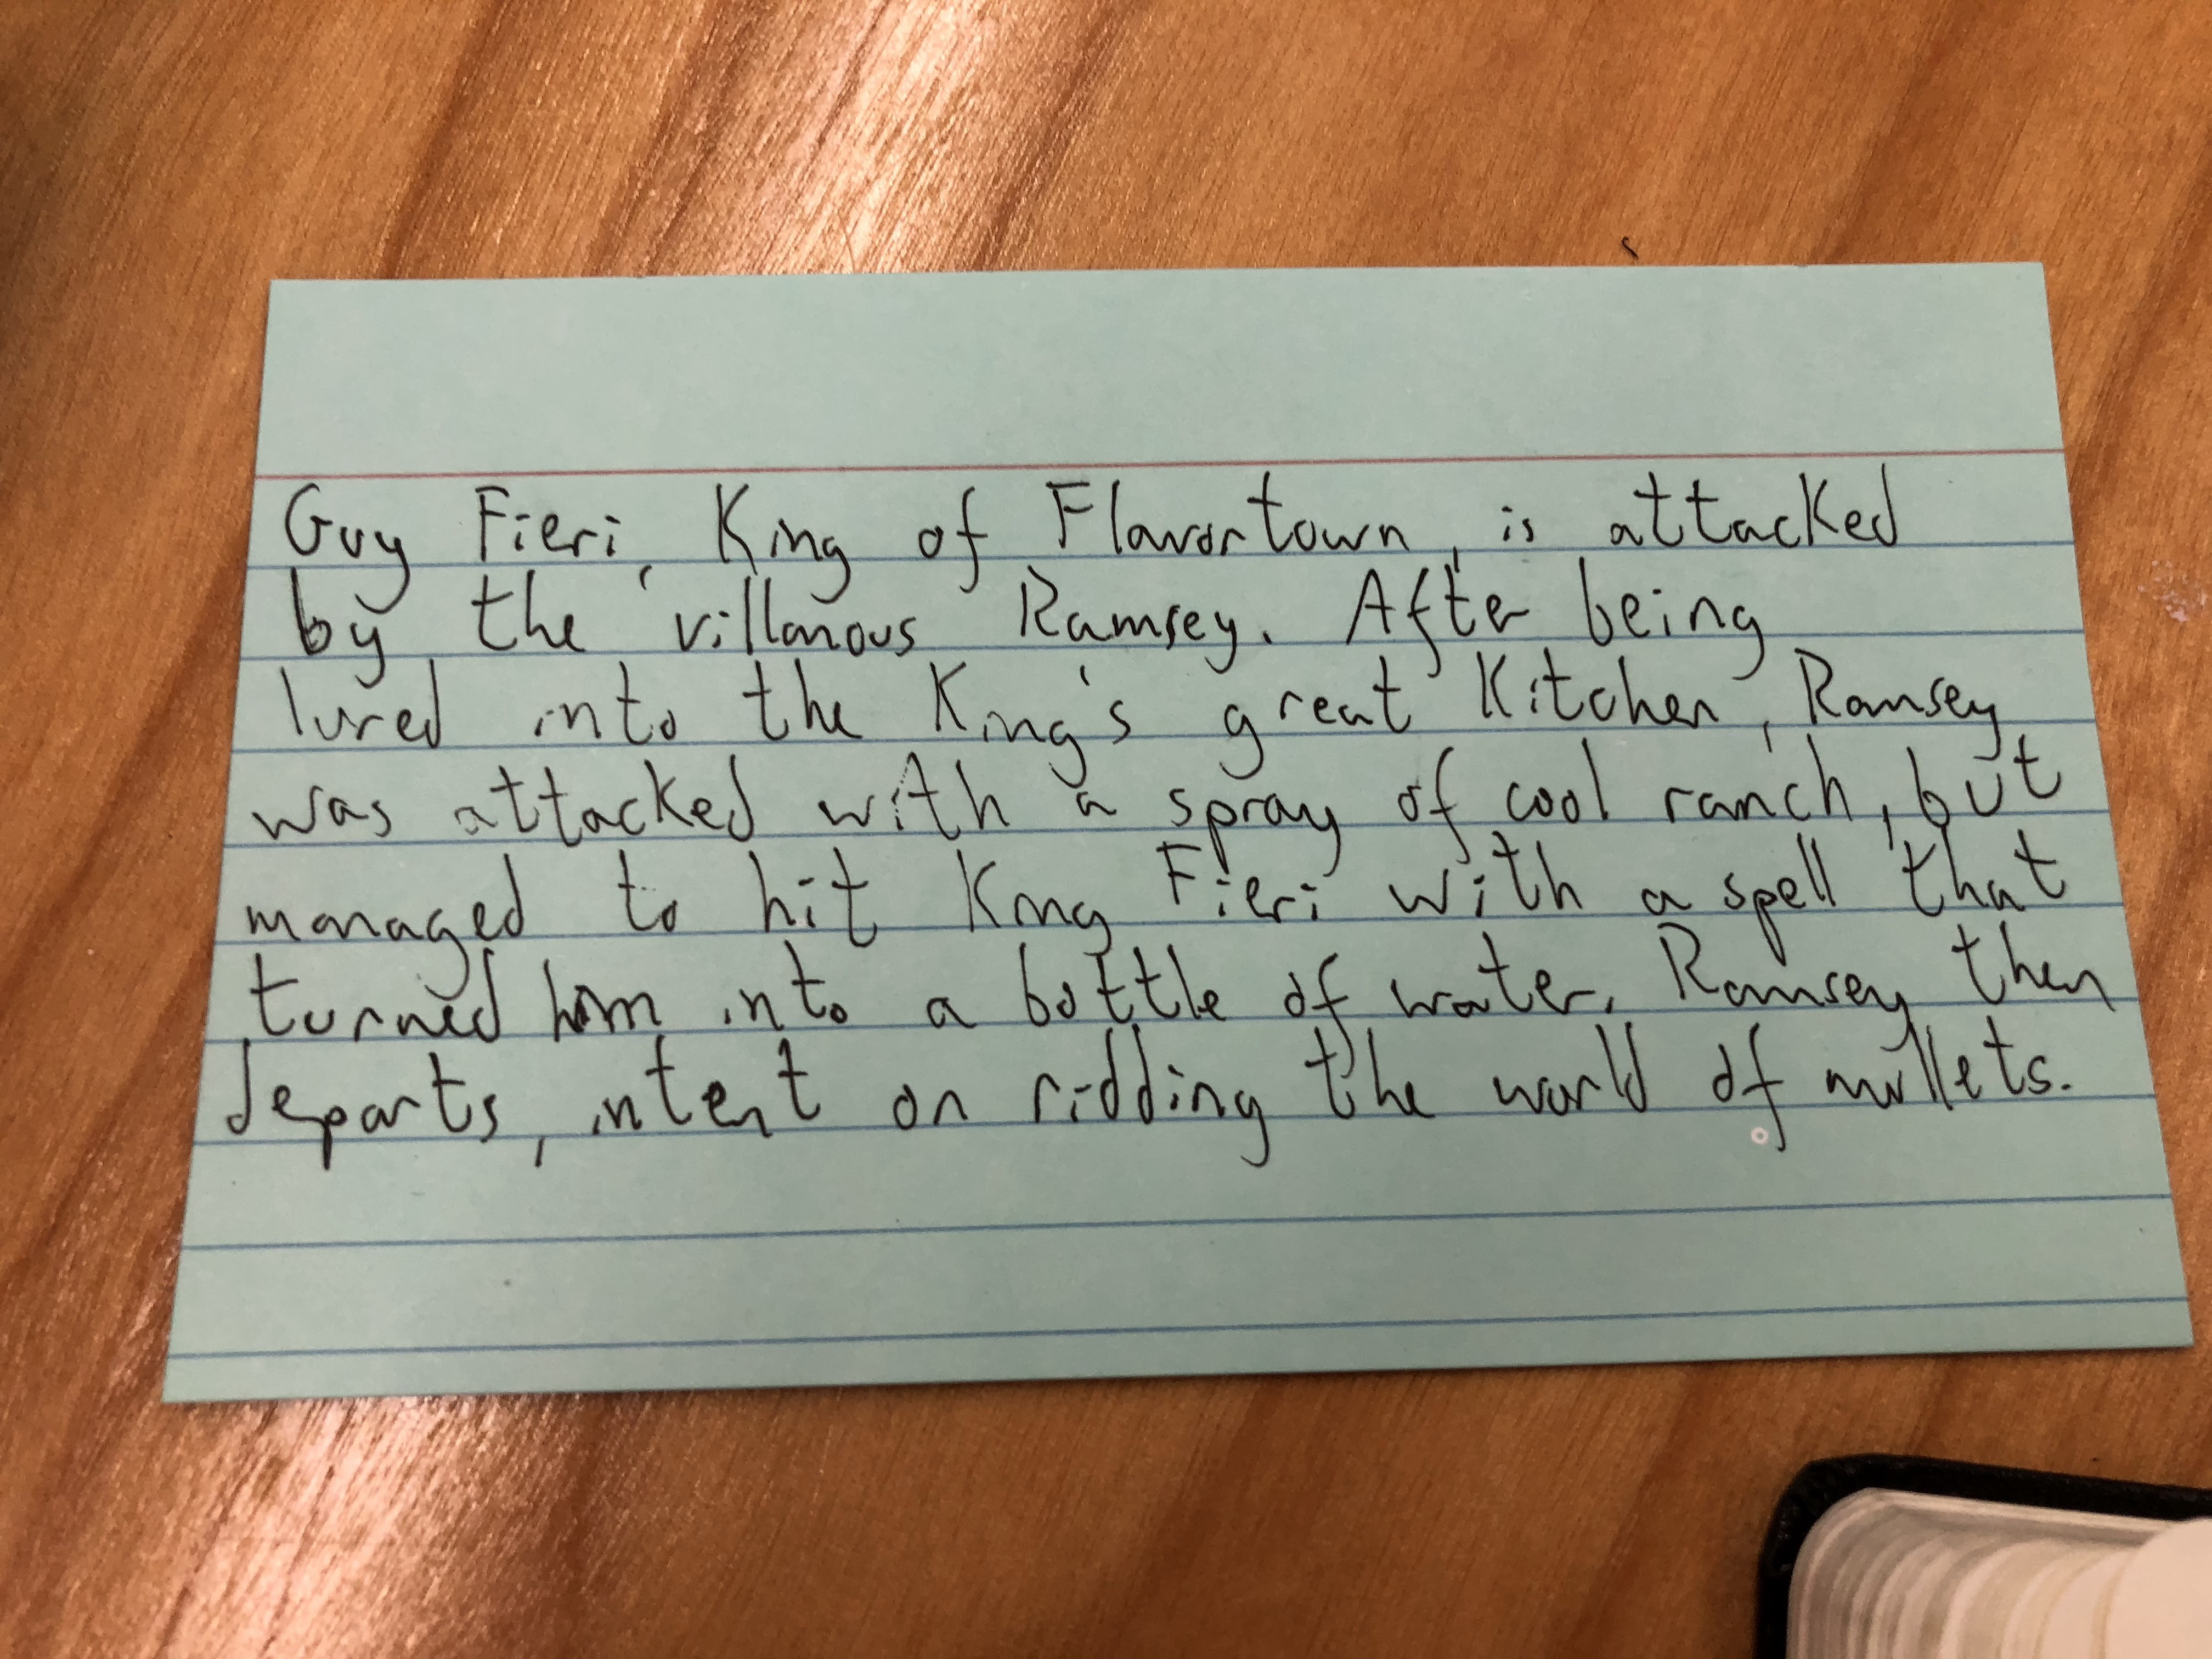 Guy Fieri, King of Flavortown, is attacked
by the villanous Ramsey. After being
lured into the King's great Kitchen, Ramsey
was attacked with a spray of cool ranch, but
managed to hit King Fieri with a spell that
turned him into a bottle of water. Ramsey then
departs, intent on ridding the world of mullets.